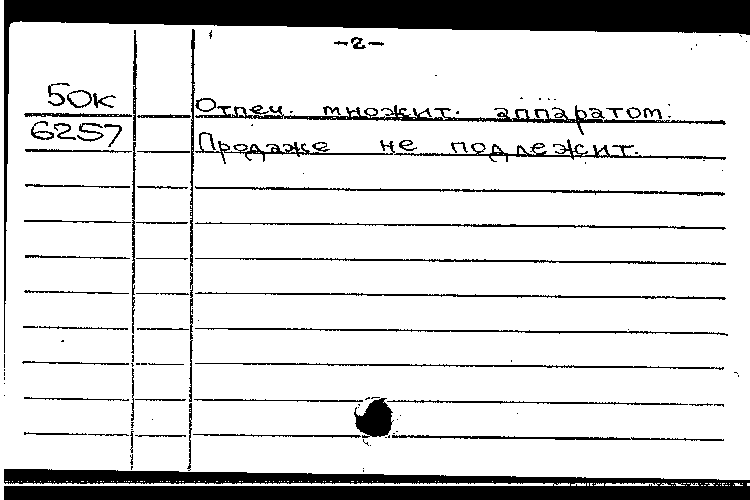 -2-
50к Отпеч. множит. аппаратом.
6257 Продаже не подлежит.